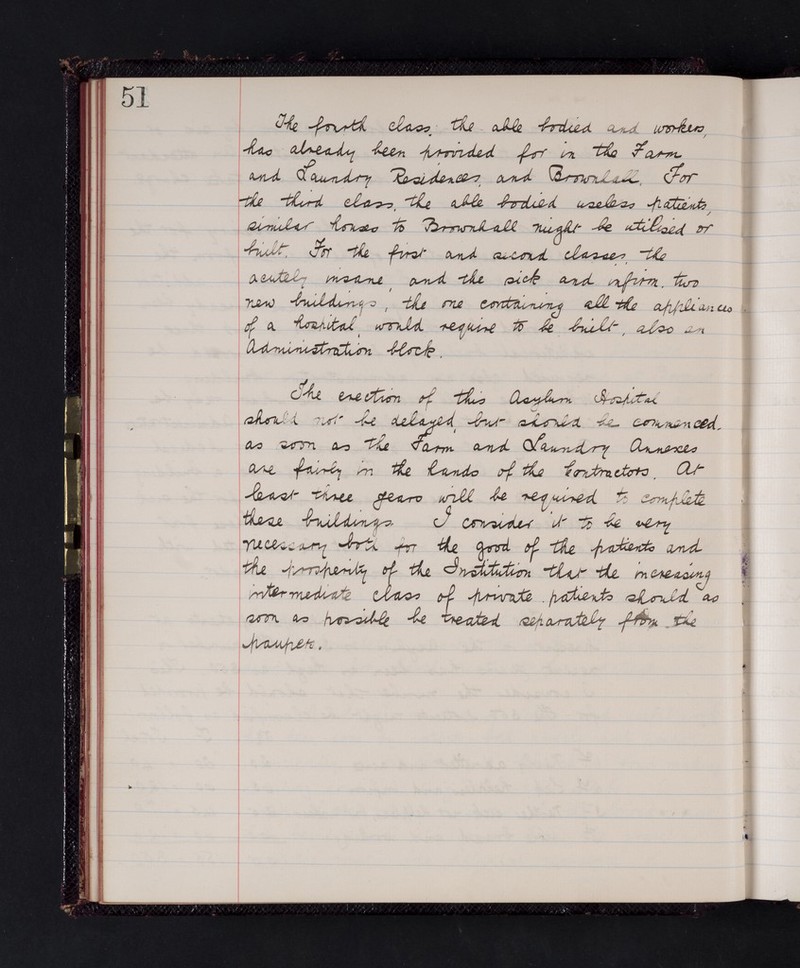 51
The fourth class, the able bodied and workers,
has already been provided for in the Farm
and Laundry Residences, and Brownhall. For
the third class, the able bodied useless patients,
similar houses to Brownhall might be utilised or
built. For the first and second classes, the
acutely insane, and the sick and infirm, two
new buildings, the one containing all the appliances
of a hospital, would require to be built, also an
Administration block.
The erection of this Asylum Hospital
should not be delayed, but should be commenced
as soon as the Farm and Laundry Annexes
are fairly in the hands of the Contractors. At
least three years will be required to complete
these buildings. I consider it to be very
necessary both for the good of the patients and
the prosperity of the Institution that the increasing
intermediate class of private patients should as
soon as possible be treated separately from the
paupers.